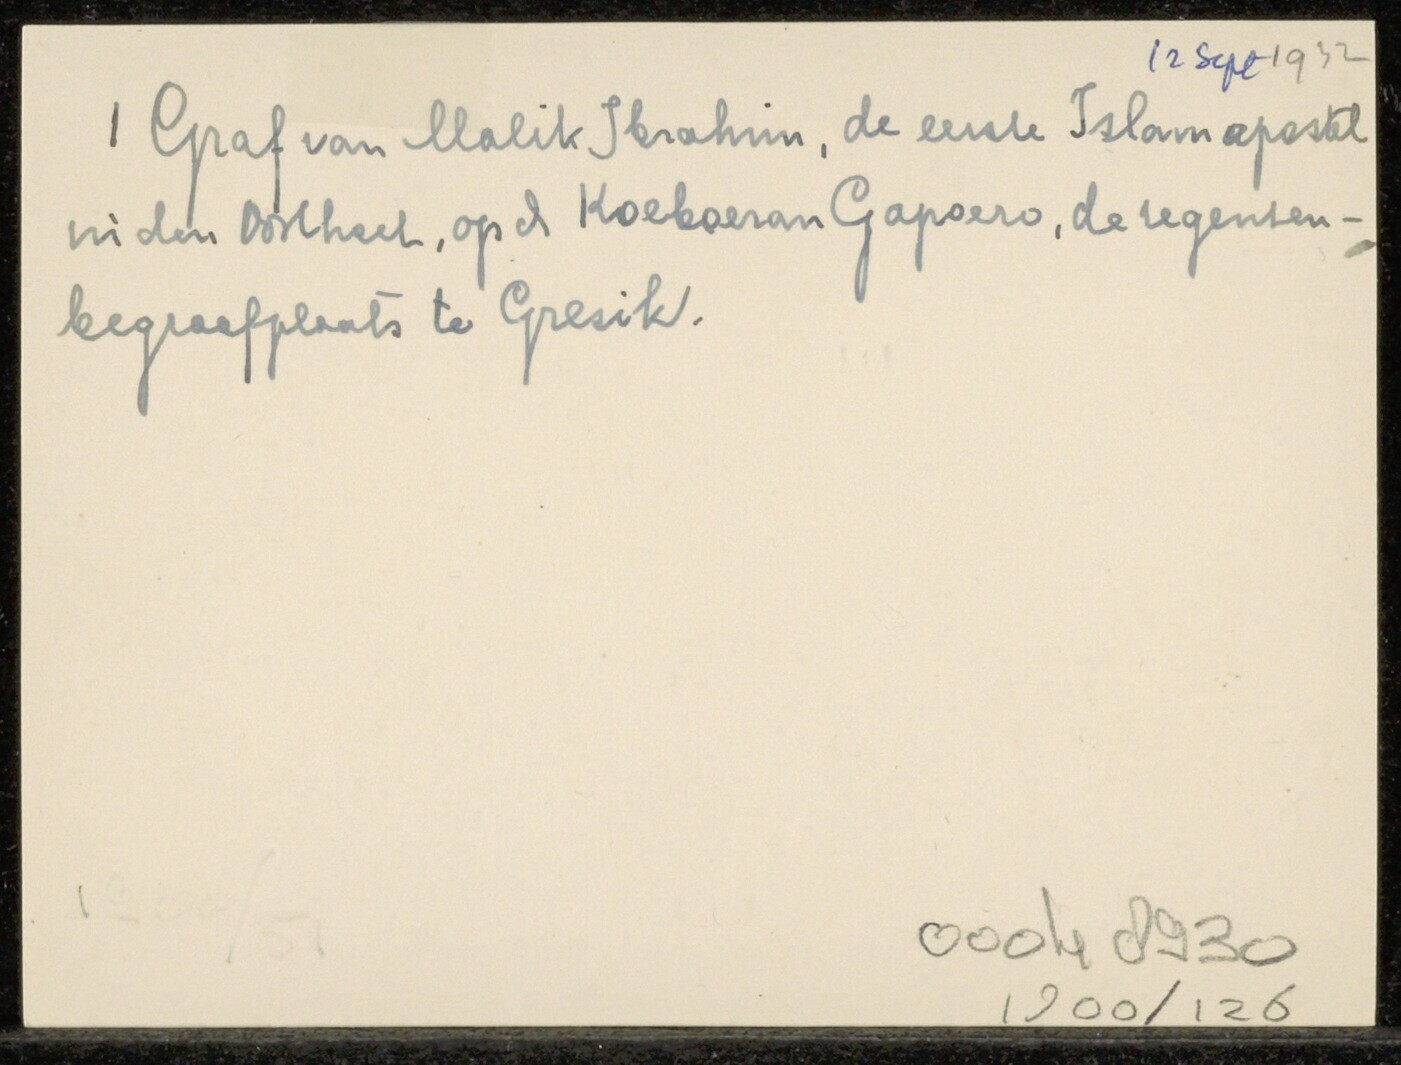 12 Sept 1932
1 Graf van Malik Ibrahim, de eerste Islamapostel
in den Oosthoek, op d Koeboeran Gapoero, de regenten-
begraafplaats te Gresik.
8930
1900/126